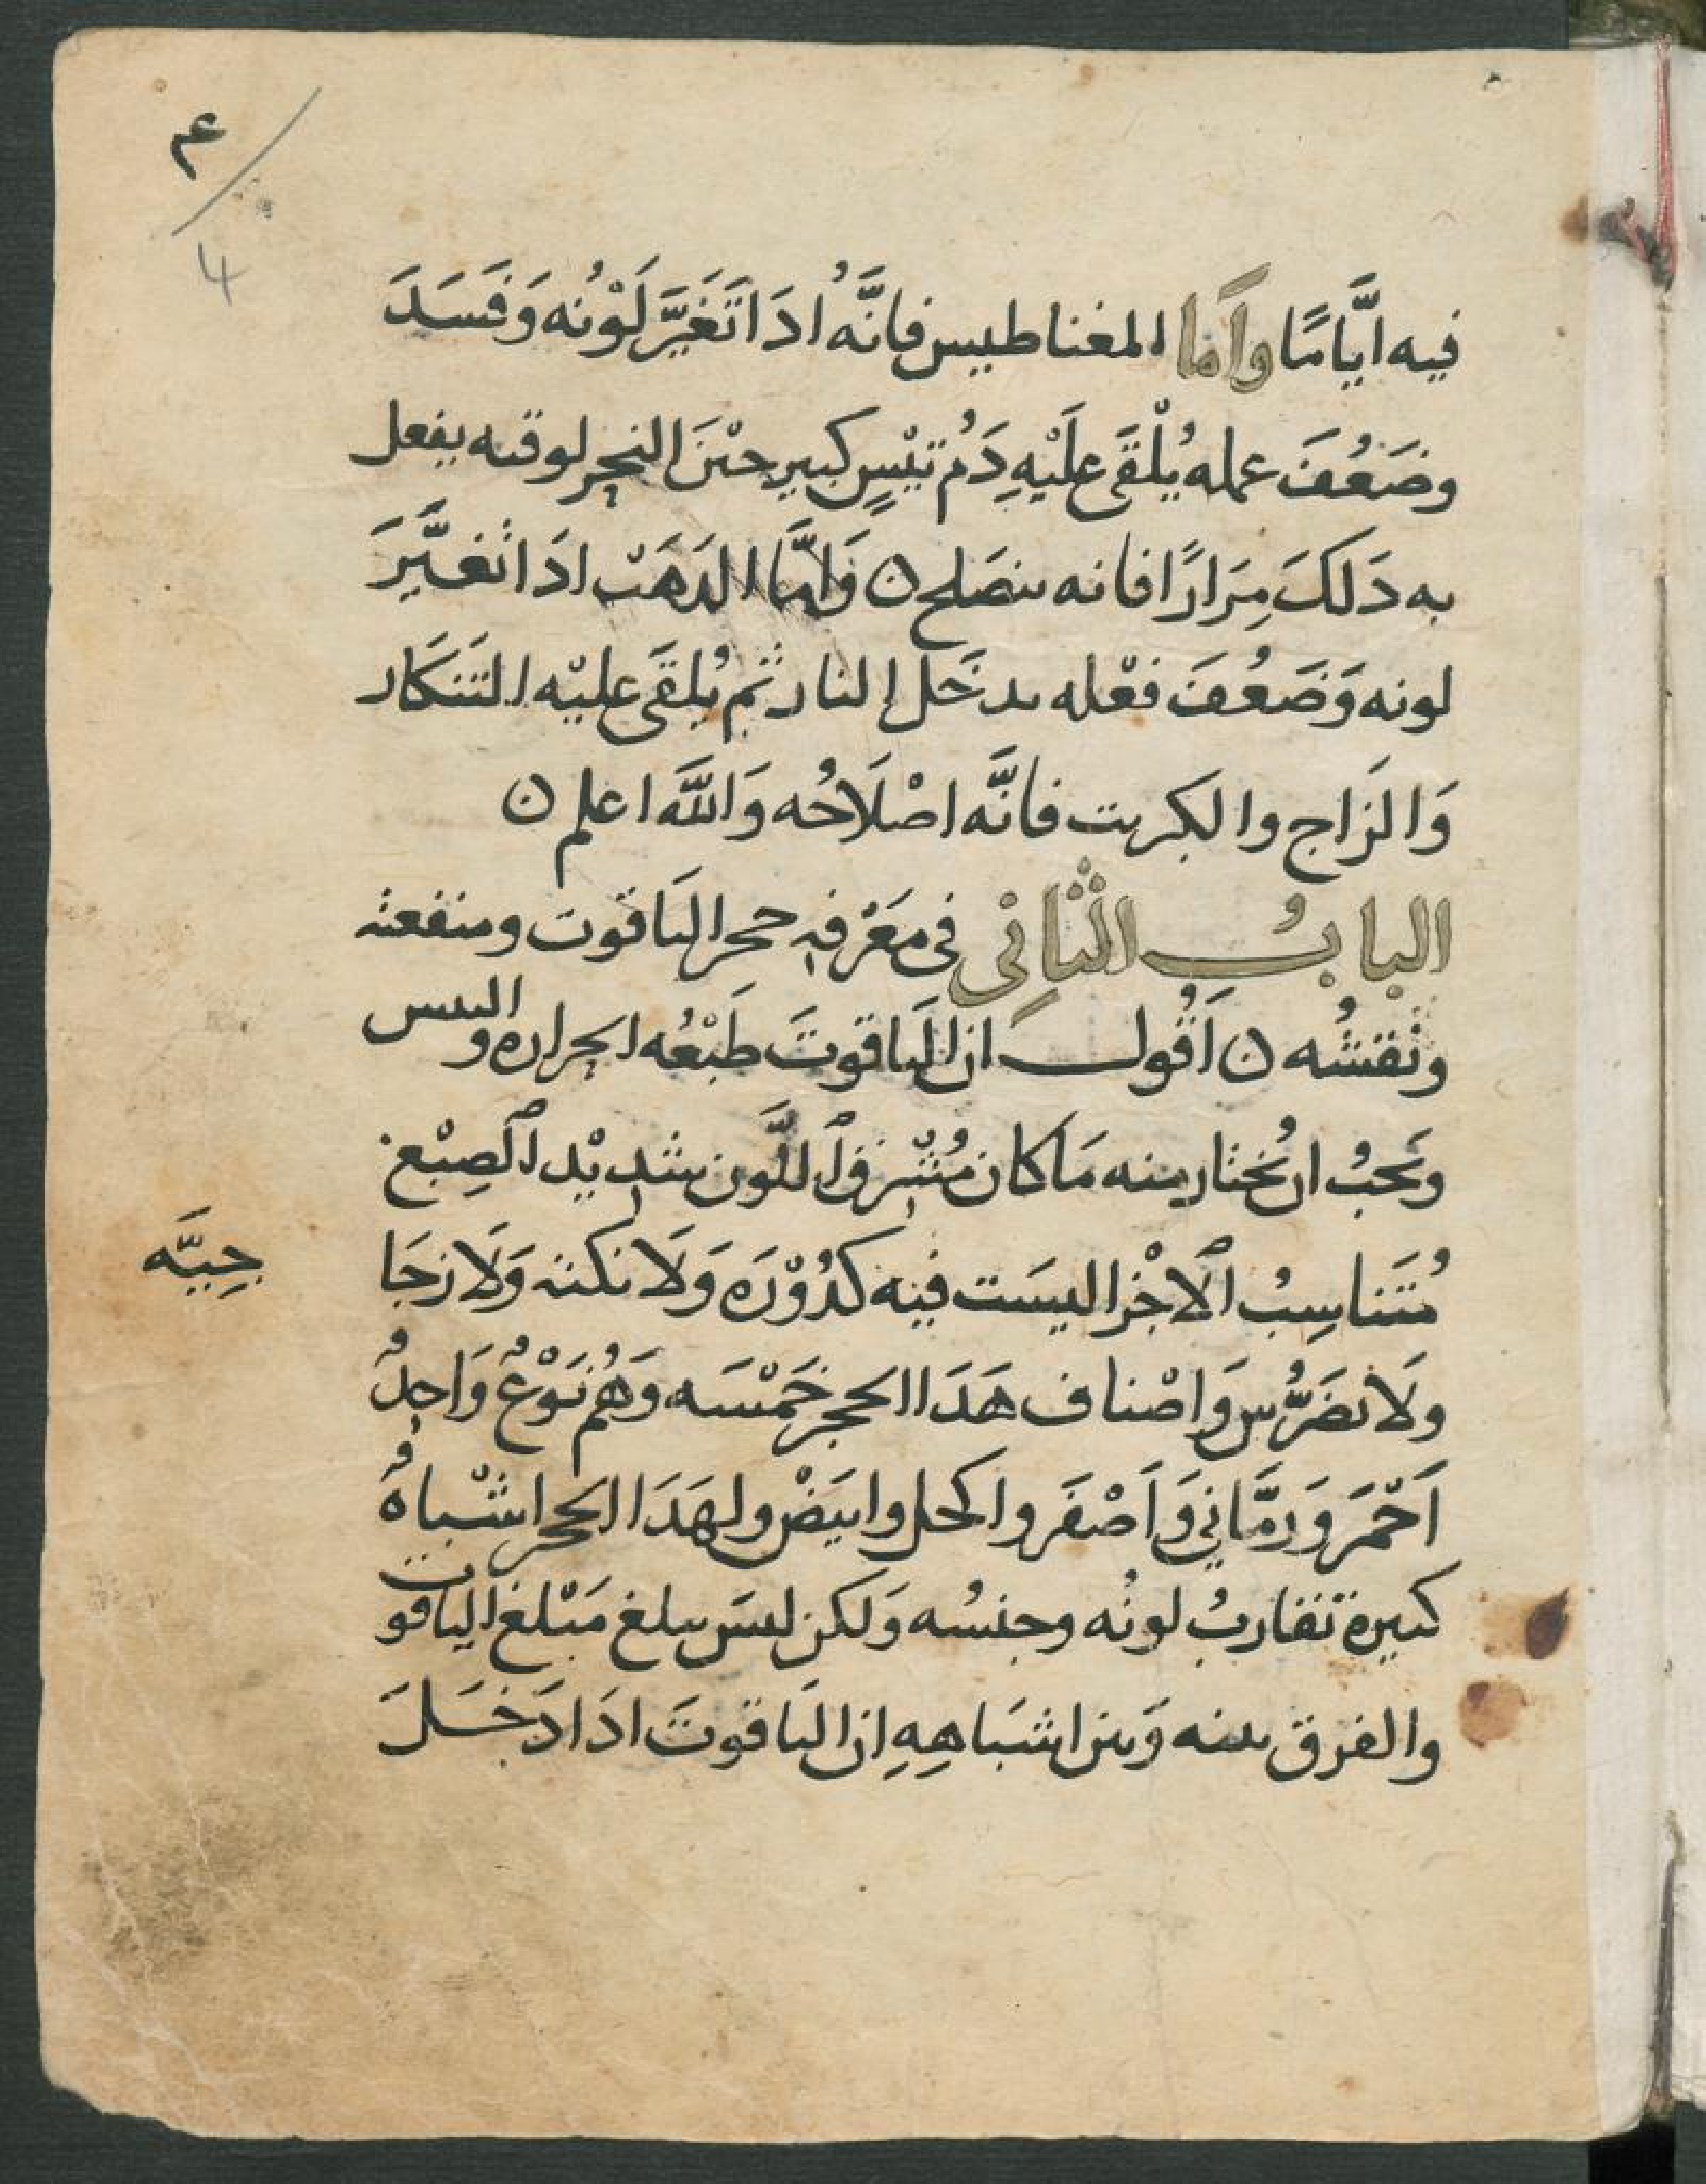 ٤
4
فيه ايَّامًا واَما المغناطيس فانَّهُ ادَا تَغَيَّرَ لَوْنُه وَفَسَدَ
وضَعُفَ عمله يُلْقَى عَلَيْهِ دَمُ تَيْسٍ كبيرٍ حيْنَ النحر لوقته يفعل
به دَلكَ مِرَارًا فانه ينصَلح ن وَامَّا الدهَب ادَا تغيَّرَ
لونه وَضَعُفَ فعْله يدخَل النار ثم يُلقَى عليْه التَنكَار
وَالزَاج والكبريت فانَّه اصْلَاحُه وَاللَّه اعلم ن
البابُ الثانِي فى مَعْرفة حجر اليَاقوت ومنفعته
ونقشُه ن اَقُول ان اليَاقوتَ طَبْعُه الحراره واليبس
ويَجبُ ان يُختار منه مَا كان مُشْرق اللَّون شديْد الصِبْغ
مُتَناسِبُ الاجْزا ليسَت فيه كدُوْرَه وَلَا نكته وَلَا زجَا
جِيَّه
ولَا تضَرُّس وَاصْناف هَدَا الحجر خَمْسَه وَهُم نَوْعٌ وَاحِدٌ
اَحْمَر وَرمَّاني وَاَصْفَر واكحل وابيَض ولهَدَا الحجر اشْباهٌ
كبيرة تقاربُ لونُه وجنسُه وَلكن ليسَ يبلغ مَبْلغ الياقوت
والفرق بينه وَبين اشبَاههِ ان اليَاقوتَ ادَا دَخَلَ